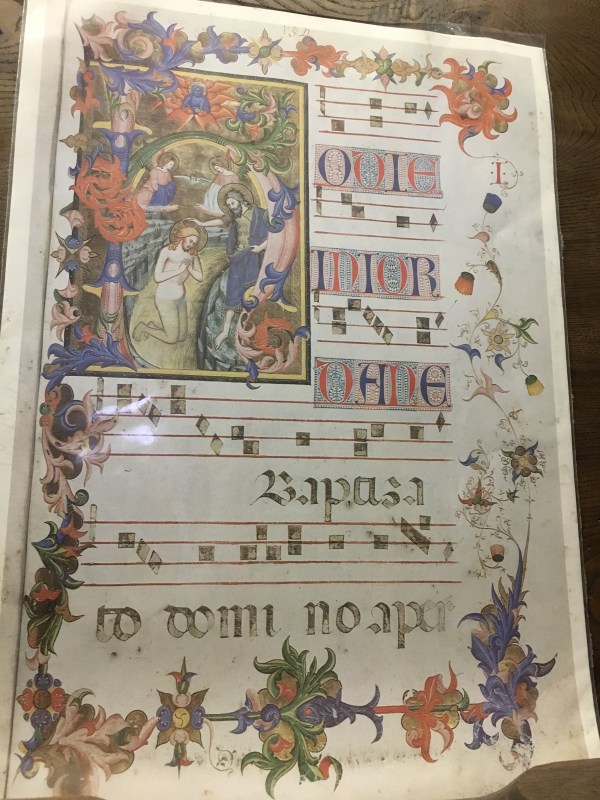 HODIE
I.
INIOR
DANE
Baptiza
to domi no aper